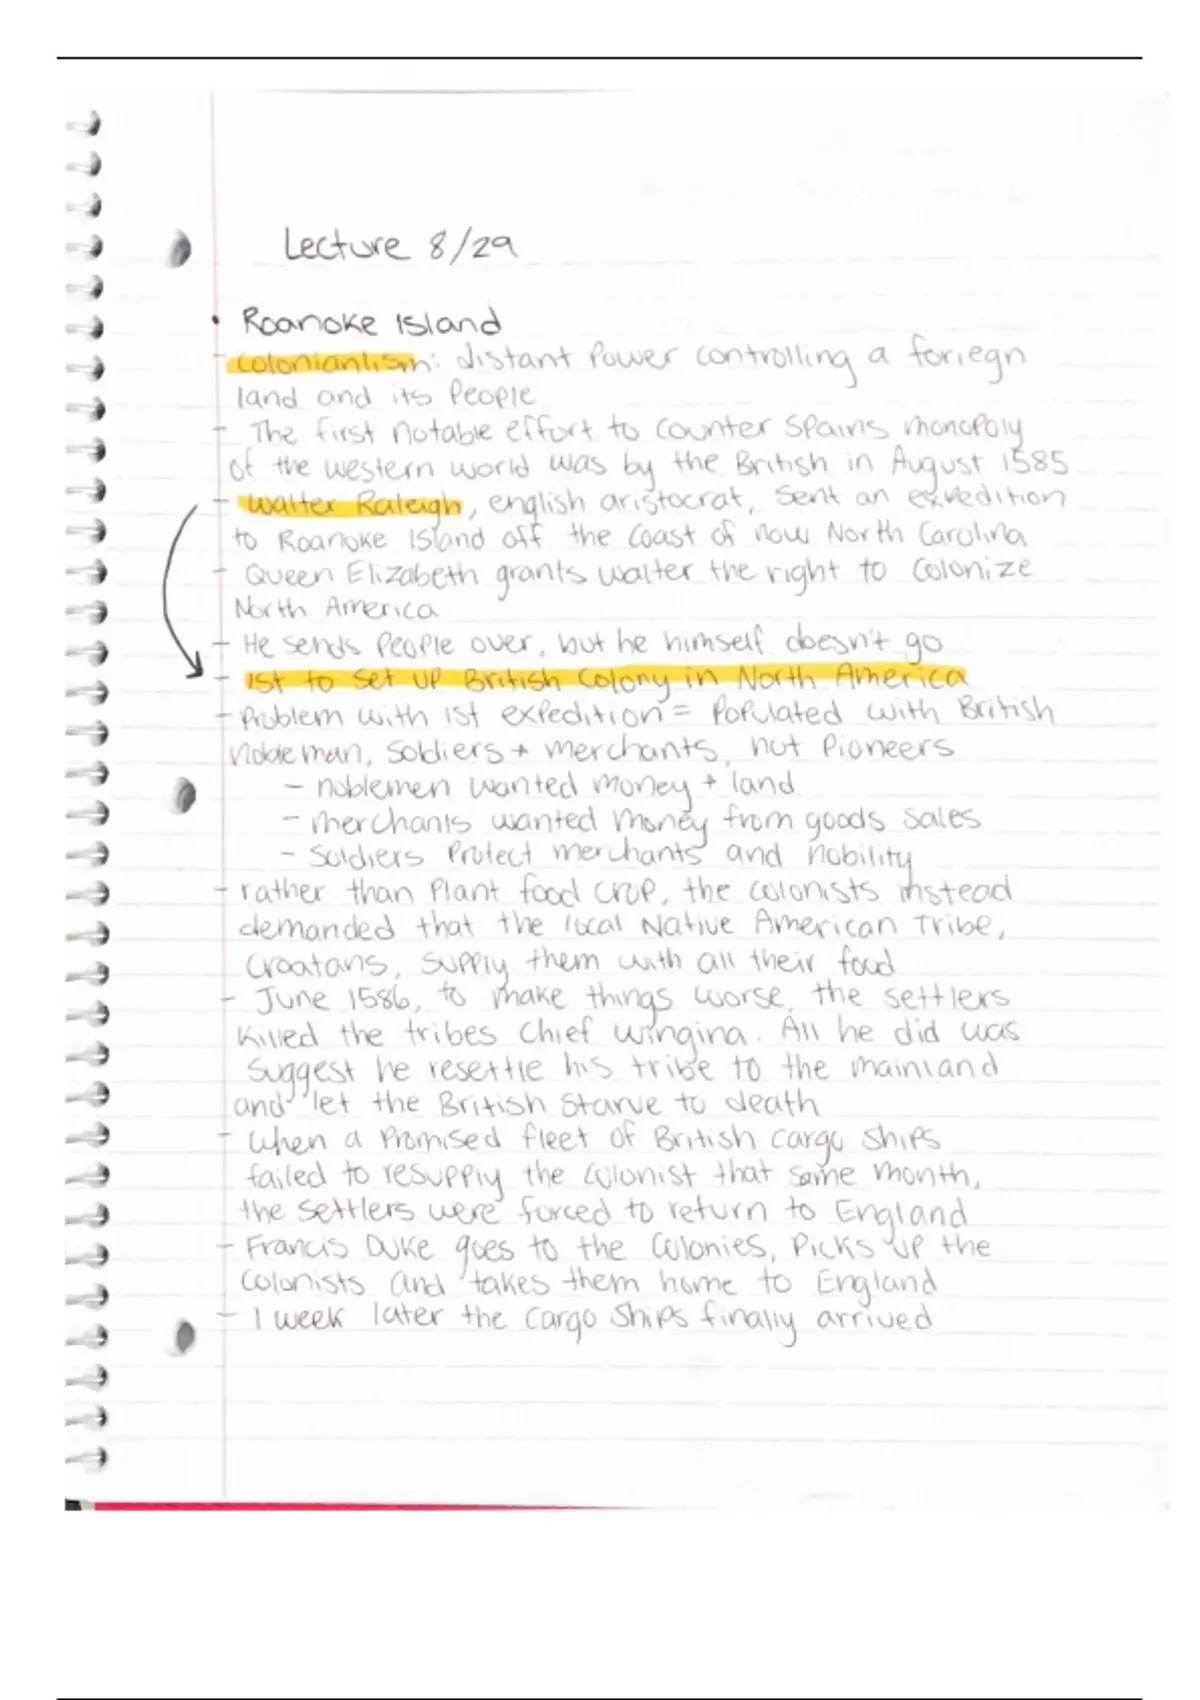 Lecture 8/29
• Roanoke Island
- colonianlism: distant power controlling a foriegn
land and its people
- The first notable effort to counter Spains monopoly
of the western world was by the British in August 1585
- Walter Raleigh, english aristocrat, sent an expedition
to Roanoke Island off the coast of now North Carolina
- Queen Elizabeth grants walter the right to colonize
North America
- He sends people over, but he himself doesn't go
- 1st to set up British Colony in North America
- Problem with 1st expedition = Populated with British
nobleman, soldiers + merchants, not pioneers
- noblemen wanted money + land
- merchants wanted money from goods sales
- Soldiers protect merchants and nobility
- rather than plant food crop, the colonists instead
demanded that the local Native American Tribe,
Croatans, supply them with all their food
- June 1586, to make things worse, the settlers
killed the tribes chief wingina. All he did was
suggest he resettle his tribe to the mainland
and let the British starve to death
- When a promised fleet of British cargo ships
failed to resupply the colonist that same month,
the settlers were forced to return to England
- Francis Duke goes to the colonies, picks up the
colonists and takes them home to England
- 1 week later the cargo ships finally arrived